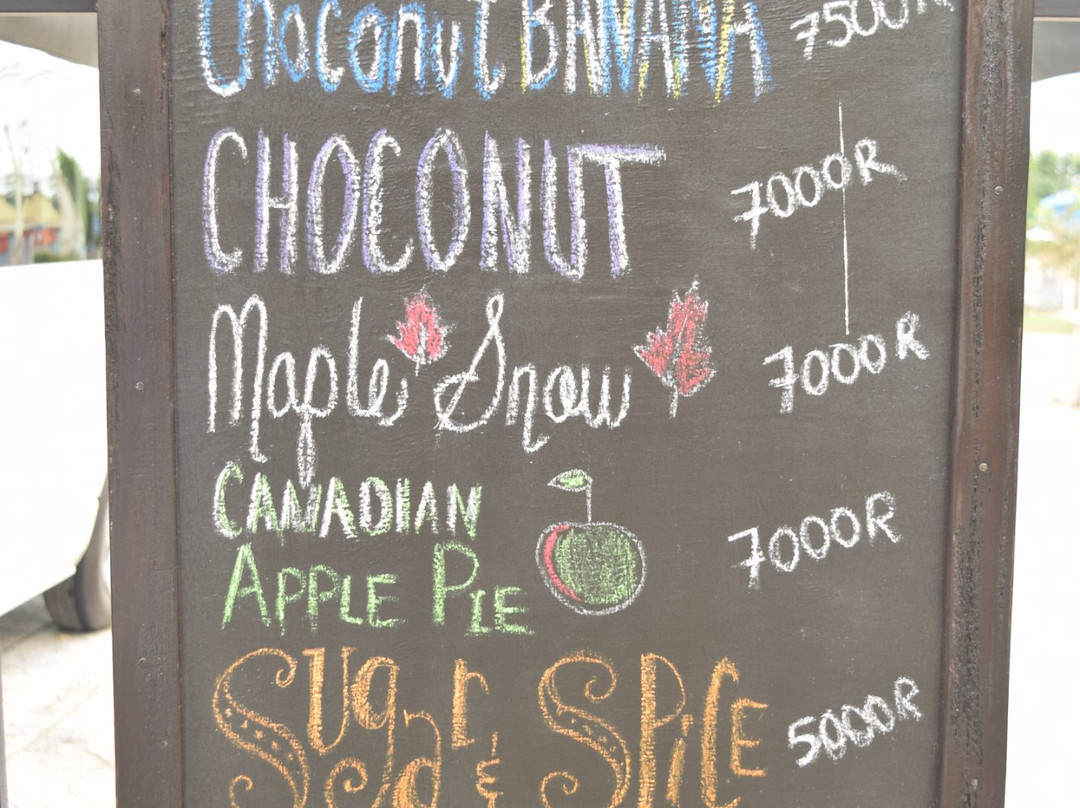 Choconut BANANA 7500R
CHOCONUT 7000R
Maple Snow 7000R
CANADIAN
APPLE PIE 7000R
SUgar & SPiCE 5000R